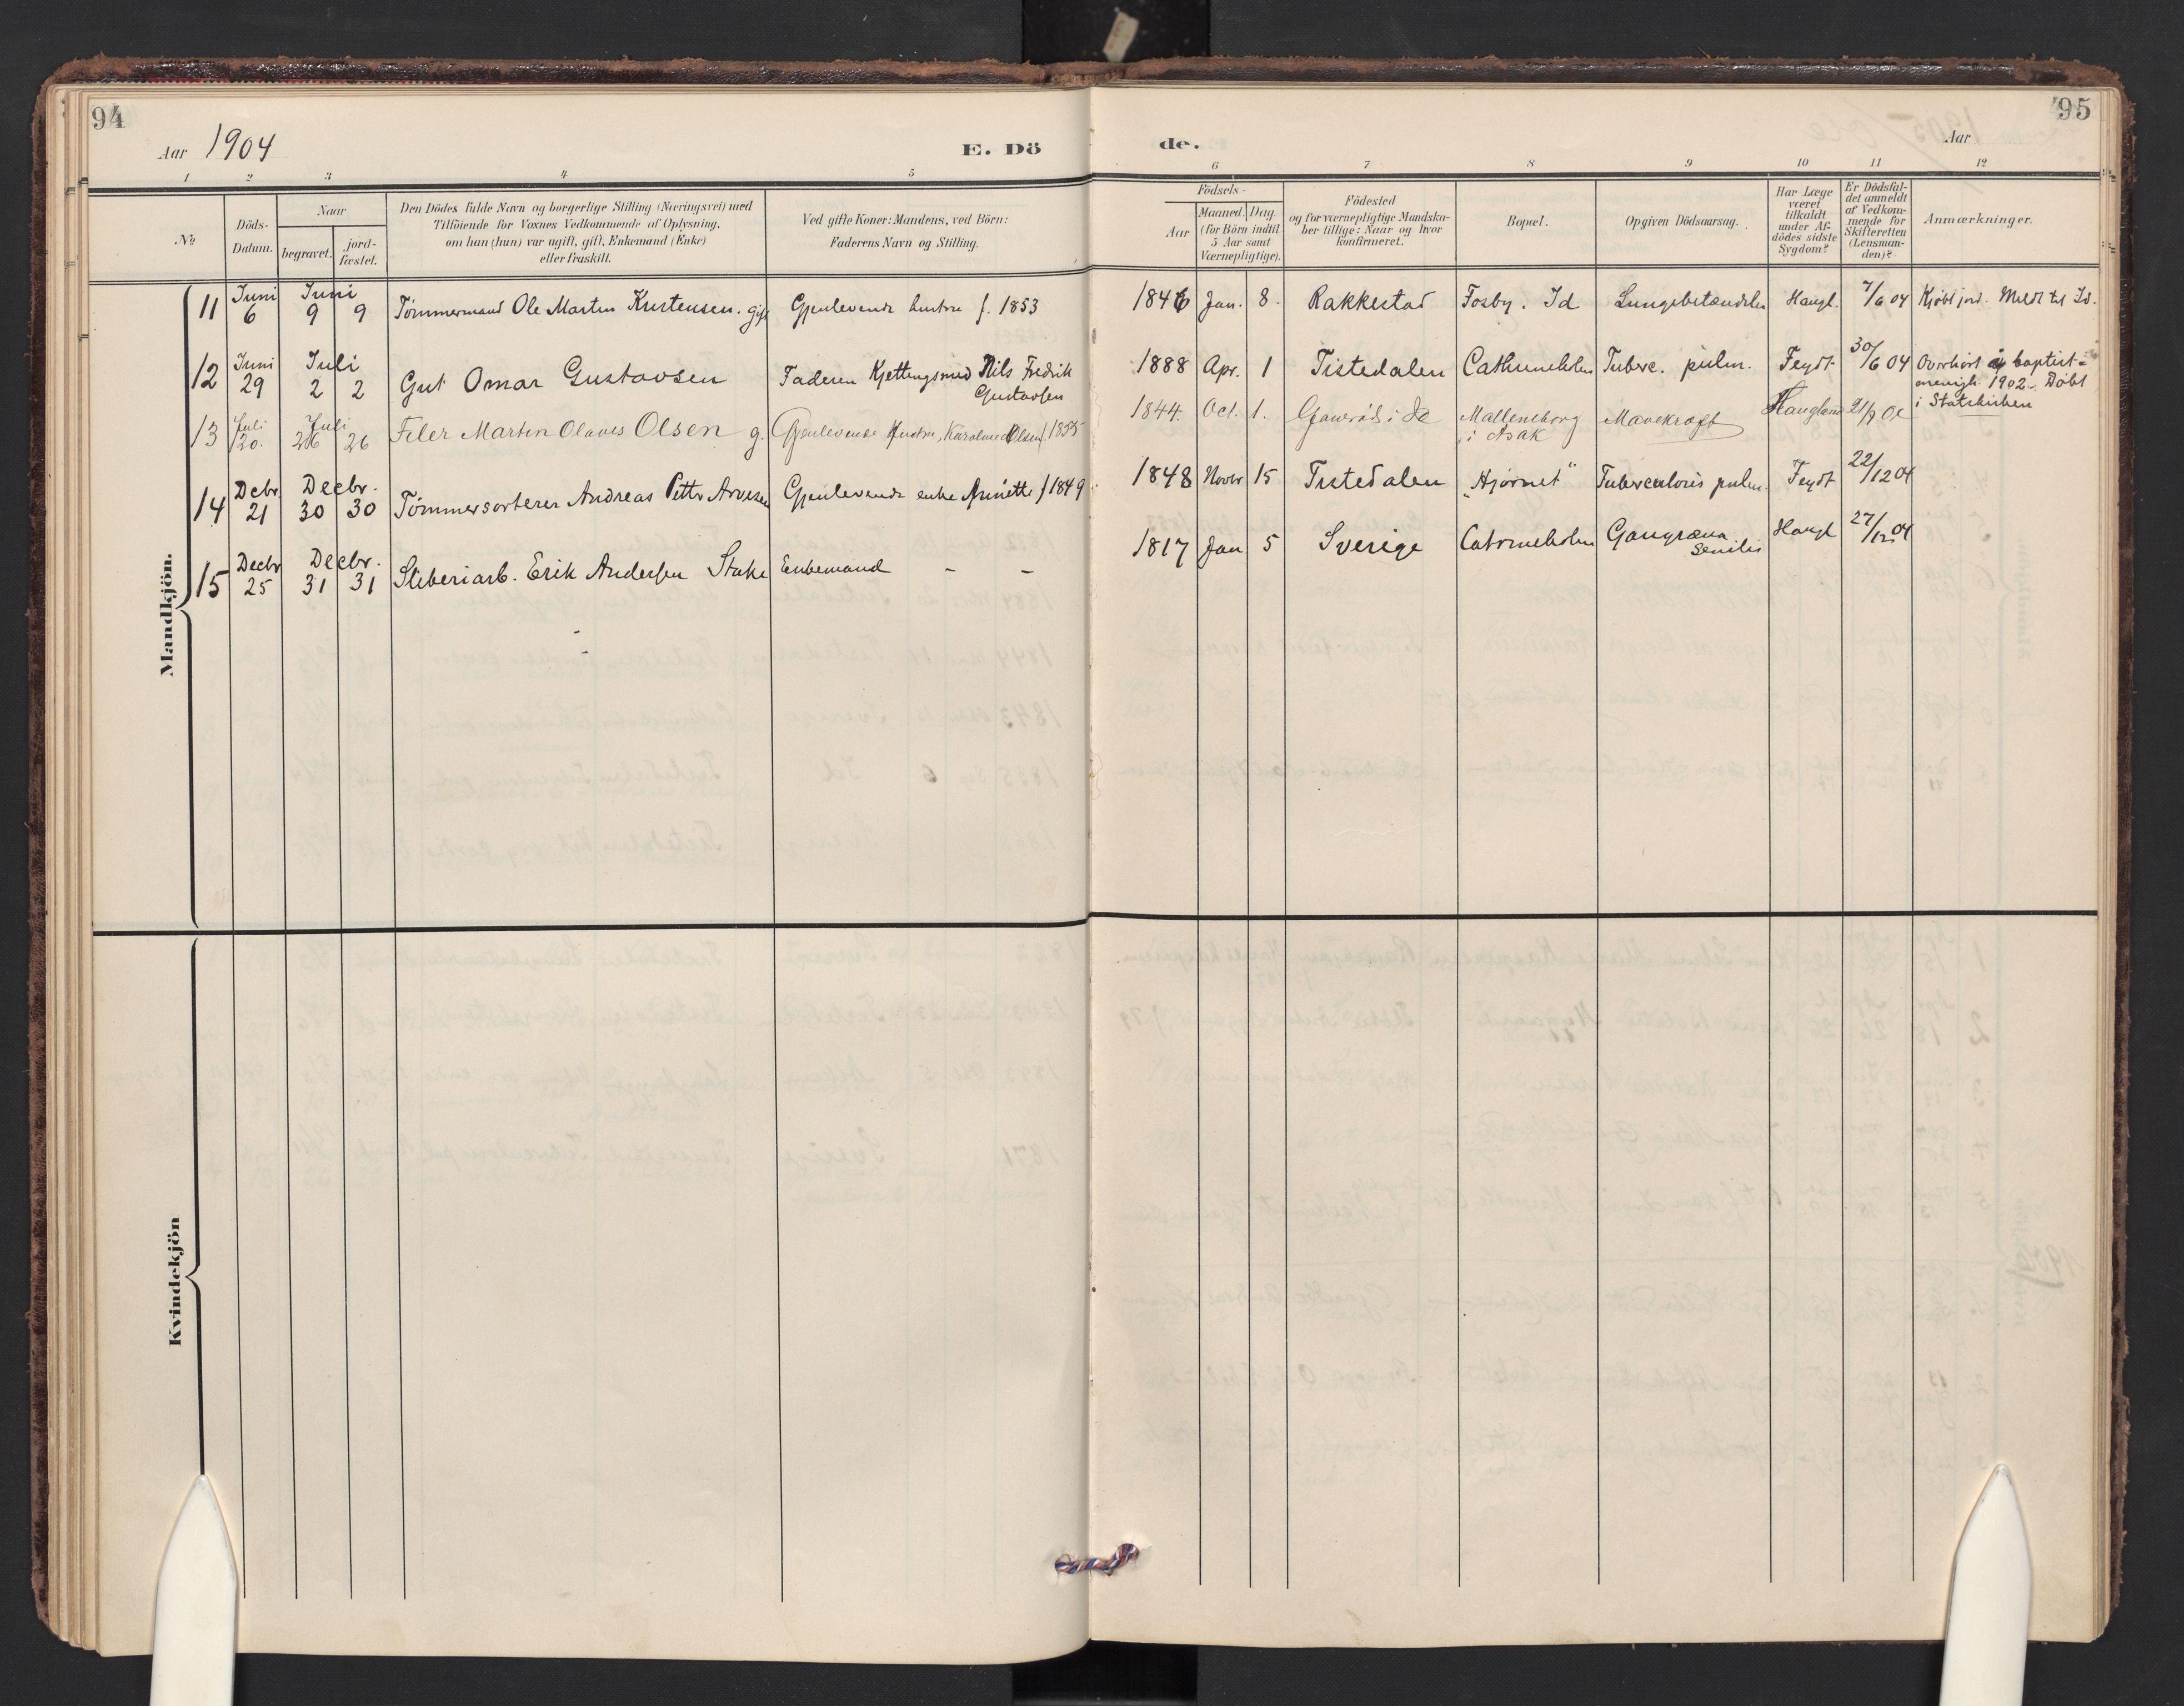 94
Aar 1904
E. Dö
1 2 3 4 5
№
Döds-
Datum.
Naar
begravet.
jord-
fæstet.
Den Dödes fulde Navn og borgerlige Stilling (Næringsvei) med
Tilföiende for Voxnes Vedkommende af Oplysning,
om han (hun) var ugift, gift, Enkemand (Enke)
eller fraskilt.
Ved gifte Koner: Mandens, ved Börn:
Faderens Navn og Stilling.
Mandkjön.
11 Juni 6 Juni 9 9 Tømmermand Ole Martin Kristensen. gift Gjenlevende hustru f. 1853
12 Juni 29 Juli 2 2 Gut Omar Gustavsen Faderen Kjettingsmed Nils Fredrik
Gustavsen
13 Juli 20. Juli 26 26 Filer Martin Olaves Olsen g. Gjenlevende Hustru, Karoline Olsen f. 1855
14 Debr 21 Decbr. 30 30 Tømmersorterer Andreas Petter Arvesen Gjenlevende enke Anette f 1849
15 Decbr 25 Decbr. 31 31 Sliberiarb. Erik Andersen Stake Enkemand - -
Kvindekjön
95
de.
Aar
6 7 8 9 10 11 12
Födsels-
Aar
Maaned. Dag.
(for Börn indtil
5 Aar samt
Værnepligtige).
Födested
og for værnepligtige Mandska-
ber tillige: Naar og hvor
konfirmeret.
Bopæl.
Opgiven Dödsaarsag.
Har Læge
været
tilkaldt
under Af-
dödes sidste
Sygdom?
Er Dödsfal-
det anmeldt
af Vedkom-
mende for
Skifteretten
(Lensman-
den)?
Anmærkninger.
1846 Jan. 8. Rakkestad Fosby. Id Lungebetændelse Haugl. 7/6 04 Kjøbt jord. Meldt til Id.
1888 Apr. 1 Tistedalen Cathrineholm Tuberc. pulm. Feydt 30/6 04 Overhørt i baptist-
menigh. 1902. Døbt
i Statskirken
1844. Oct. 1. i Id Mallenborg
i Asak Mavekræft Haugland 21/7 04
1848 Novbr 15 Tistedalen "Hjørnet" Tuberculosis pulm. Feydt 22/12 04
1817 Jan 5 Sverige Catrineholm Gangræna
Senilis Haugl 27/12 04